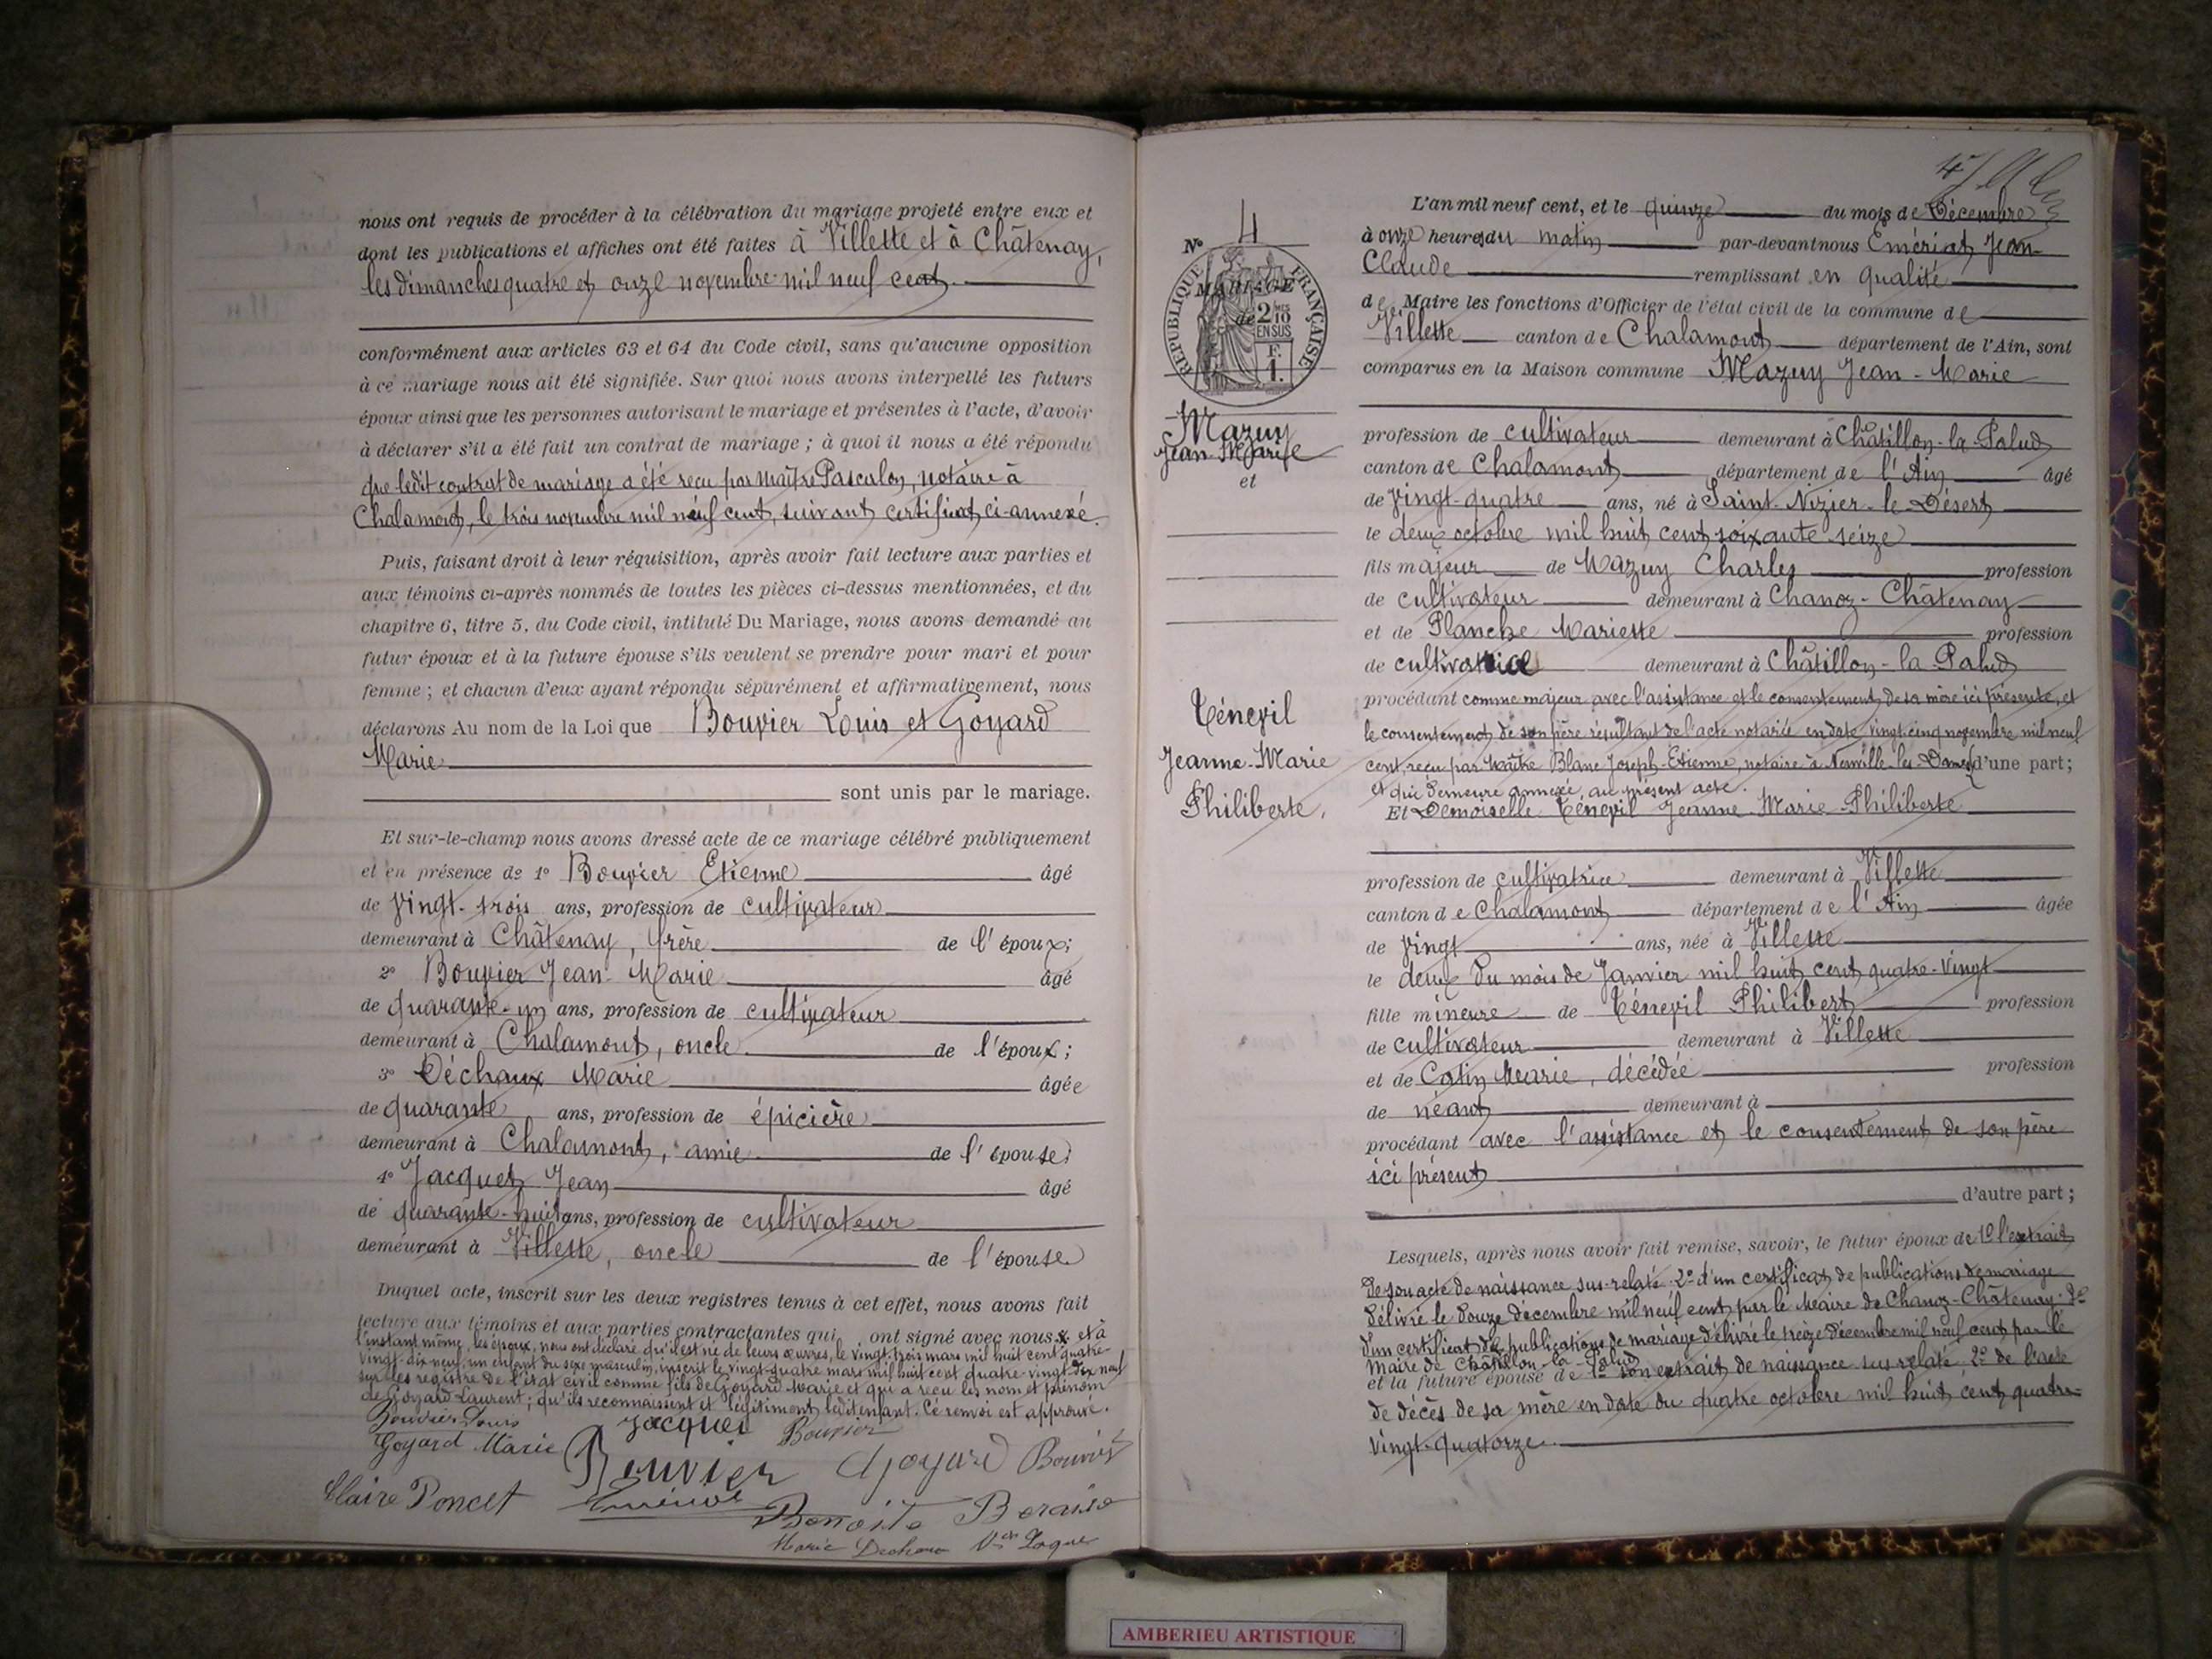 nous ont requis de procéder à la célébration du mariage projeté entre eux et
dont les publications et affiches ont été faites à Villette et à Châtenay,
les dimanches quatre et onze novembre mil neuf cent.
conformément aux articles 63 et 64 du Code civil, sans qu'aucune opposition
à ce mariage nous ait été signifiée. Sur quoi nous avons interpellé les futurs
époux ainsi que les personnes autorisant le mariage et présentes à l'acte, d'avoir
à déclarer s'il a été fait un contrat de mariage ; à quoi il nous a été répondu
que ledit contrat de mariage a été reçu par Maître Pascalon, notaire à
Chalamont, le trois novembre mil neuf cent, suivant certificat ci-annexé.
Puis, faisant droit à leur réquisition, après avoir fait lecture aux parties et
aux témoins ci-après nommés de toutes les pièces ci-dessus mentionnées, et du
chapitre 6, titre 5, du Code civil, intitulé Du Mariage, nous avons demandé au
futur époux et à la future épouse s'ils veulent se prendre pour mari et pour
femme ; et chacun d'eux ayant répondu séparément et affirmativement, nous
déclarons Au nom de la Loi que Bouvier Louis et Goyard
Marie
sont unis par le mariage.
Et sur-le-champ nous avons dressé acte de ce mariage célébré publiquement
et en présence de 1° Bouvier Etienne âgé
de vingt-trois ans, profession de cultivateur
demeurant à Châtenay, frère de l'époux;
2° Bouvier Jean-Marie âgé
de quarante-un ans, profession de cultivateur
demeurant à Chalamont, oncle de l'époux;
3° Déchaux Marie âgée
de quarante ans, profession de épicière
demeurant à Chalamont, amie de l'épouse;
4° Jacquet Jean âgé
de quarante-huit ans, profession de cultivateur
demeurant à Villette, oncle de l'épouse
Duquel acte, inscrit sur les deux registres tenus à cet effet, nous avons fait
lecture aux témoins et aux parties contractantes qui ont signé avec nous et à
l'instant même, les époux, nous ont déclaré qu'il est né de leurs œuvres, le vingt-trois mars mil huit cent quatre
vingt-dix-neuf, un enfant du sexe masculin, inscrit le vingt-quatre mars mil huit cent quatre-vingt-dix neuf
sur les registre de l'état civil comme fils de Goyard Marie et qui a reçu les nom et prénom
de Goyard Laurent; qu'ils reconnaissent et légitiment ledit enfant. Ce renvoi est approuvé.
Bouvier Louis Jacquet Bouvier
Goyard Marie Bouvier Goyard Bouvier
Claire Poncet Emériat Benoite
Marie Dechaux
N° 4
RÉPUBLIQUE FRANÇAISE
MARIAGE
de
2/10 EN SUS
F. 1.
Mazuy
Jean-Marie
et
Ténevil
Jeanne-Marie
Philiberte.
L'an mil neuf cent, et le quinze du mois de Décembre
à onze heures du matin par-devant nous Emériat Jean-
Claude remplissant en qualité
de Maire les fonctions d'Officier de l'état civil de la commune de
Villette canton de Chalamont département de l'Ain, sont
comparus en la Maison commune Mazuy Jean-Marie
profession de cultivateur demeurant à Châtillon-la-Palud
canton de Chalamont département de l'Ain âgé
de vingt-quatre ans, né à Saint-Nizier-le-Désert
le deux octobre mil huit cent soixante-seize
fils majeur de Mazuy Charles profession
de cultivateur demeurant à Chanoz-Châtenay
et de Planche Mariette profession
de cultivatrice demeurant à Châtillon-la-Palud
procédant comme majeur avec l'assistance et le consentement de sa mère ici présente, et
le consentement de son père résultant de l'acte notarié en date vingt-cinq novembre mil neuf
cent, reçu par Maître Blanc Joseph-Etienne, notaire à Neuville-les-Dames d'une part;
et qui demeure annexé au présent acte.
Et Demoiselle Ténevil Jeanne-Marie-Philiberte
profession de cultivatrice demeurant à Villette
canton de Chalamont département de l'Ain âgée
de vingt ans, née à Villette
le deux du mois de Janvier mil huit cent quatre-vingt
fille mineure de Ténevil Philibert profession
de cultivateur demeurant à Villette
et de Catin Marie, décédée profession
de néant demeurant à
procédant avec l'assistance et le consentement de son père
ici présent
d'autre part;
Lesquels, après nous avoir fait remise, savoir, le futur époux de 1° l'extrait
de son acte de naissance sus-relaté. 2° d'un certificat de publications de mariage
délivré le douze décembre mil neuf cent par le Maire de Chanoz-Châtenay. 3°
d'un certificat de publications de mariage délivré le treize décembre mil neuf cent par le
Maire de Châtillon-la-Palud
et la future épouse de 1° son extrait de naissance sus-relaté 2° de l'acte
de décès de sa mère en date du quatre octobre mil huit cent quatre-
vingt-quatorze.
AMBERIEU ARTISTIQUE